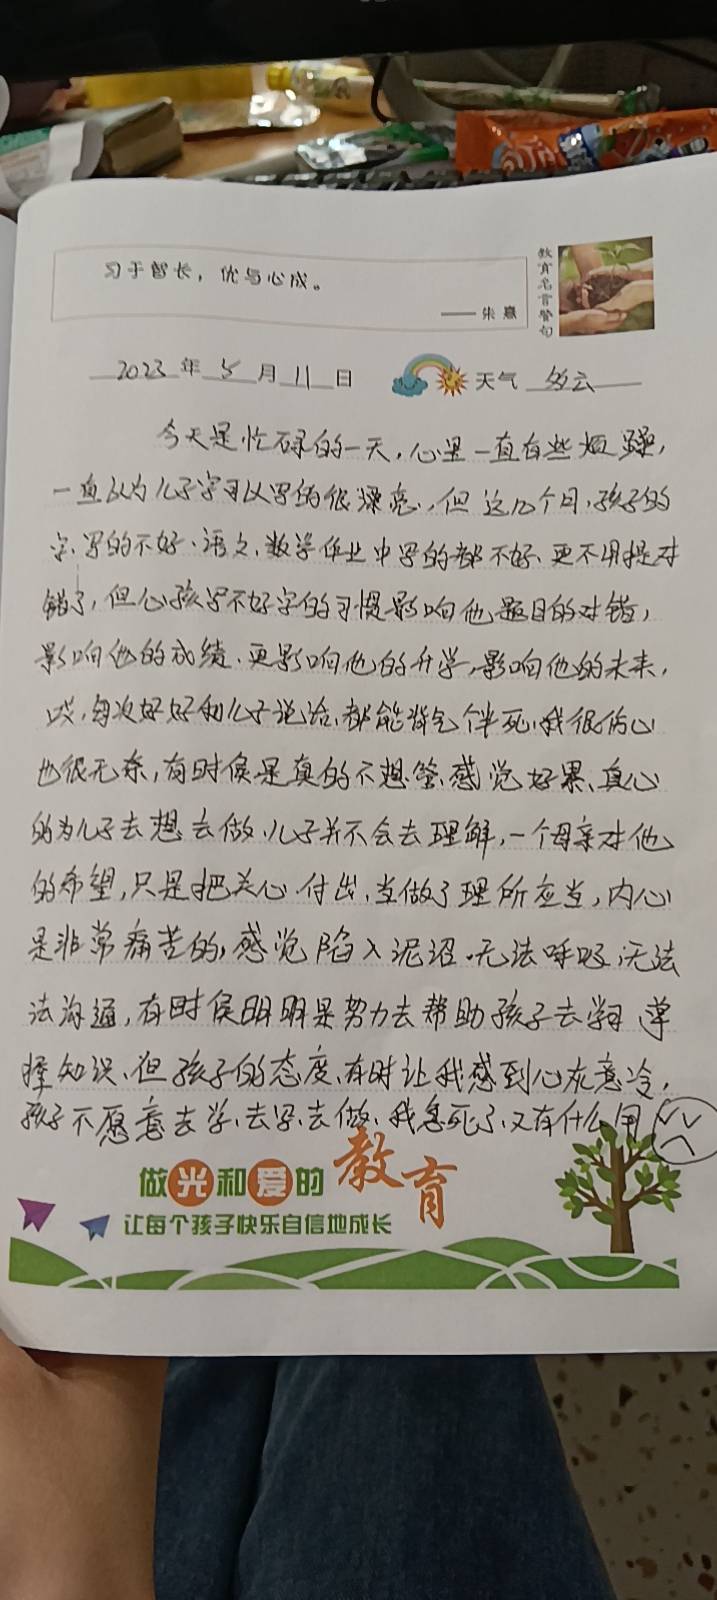 习于智长，优与心成。
—— 朱熹
教育名言警句
2023年5月11日 天气 多云
今天是忙碌的一天，心里一直有些烦躁，
一直认为儿子字可以写的很漂亮，但这几个月，孩子的
字，写的不好，语文、数学作业中写的都不好、更不用提对
错了，但心孩写不好字的习惯影响他题目的对错，
影响他的成绩、更影响他的升学，影响他的未来，
哎，每次好好和儿子说话、都能背气个半死，我很伤心
也很无奈，有时候是真的不想管、感觉好累、真心
的为儿子去想去做，儿子并不会去理解，一个母亲对他
的希望，只是把关心付出、当做了理所应当，内心
是非常痛苦的，感觉陷入泥沼，无法呼吸，无法
法沟通，有时侯明明是努力去帮助孩子去学习、掌
握知识、但孩子的态度、有时让我感到心灰意冷，
孩子不愿意去学、去写、去做、我急死了、又有什么用
做光和爱的教育
让每个孩子快乐自信地成长